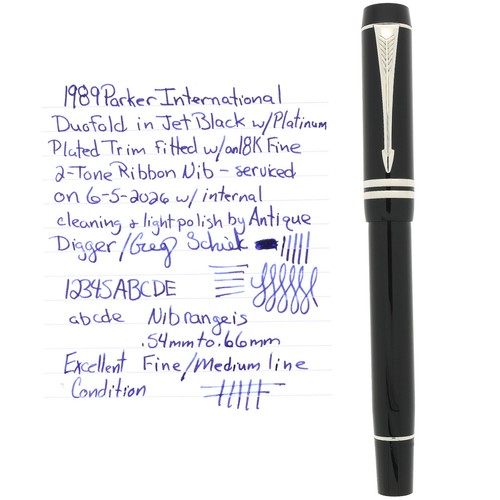 1989 Parker International
Duofold in Jet Black w/Platinum
Plated Trim fitted w/an 18K Fine
2-Tone Ribbon Nib - serviced
on 6-5-2026 w/ internal
cleaning & light polish by Antique
Digger/Greg Schiek
12345ABCDE
abcde Nib range is
.54mm to .66mm
Excellent Fine/Medium line
Condition